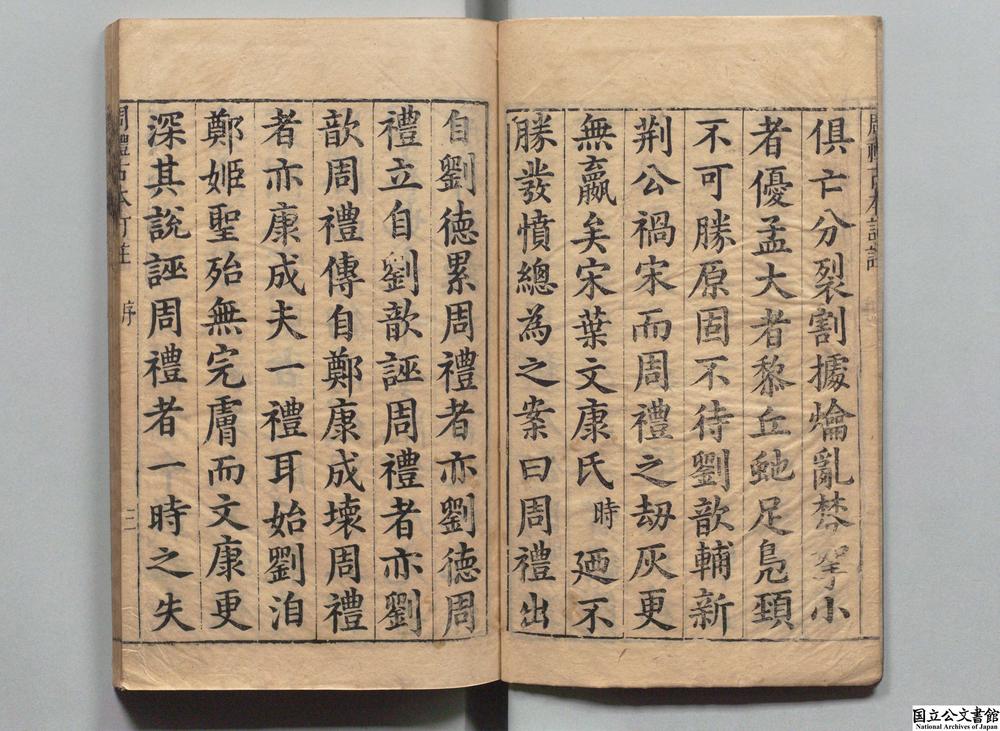 俱亡分裂割據爚亂棼挐小
者優孟大者黎丘虵足鳧頸
不可勝原固不待劉歆輔新
荆公禍宋而周禮之刼灰更
無嬴矣宋葉文康氏時廼不
勝發憤總為之案曰周禮出
自劉德累周禮者亦劉德周
禮立自劉歆誣周禮者亦劉
歆周禮傳自鄭康成壞周禮
者亦康成夫一禮耳始劉洎
鄭姬聖殆無完膚而文康更
深其說誣周禮者一時之失
周禮古本訂註
序
三
国立公文書館
National Archives of Japan